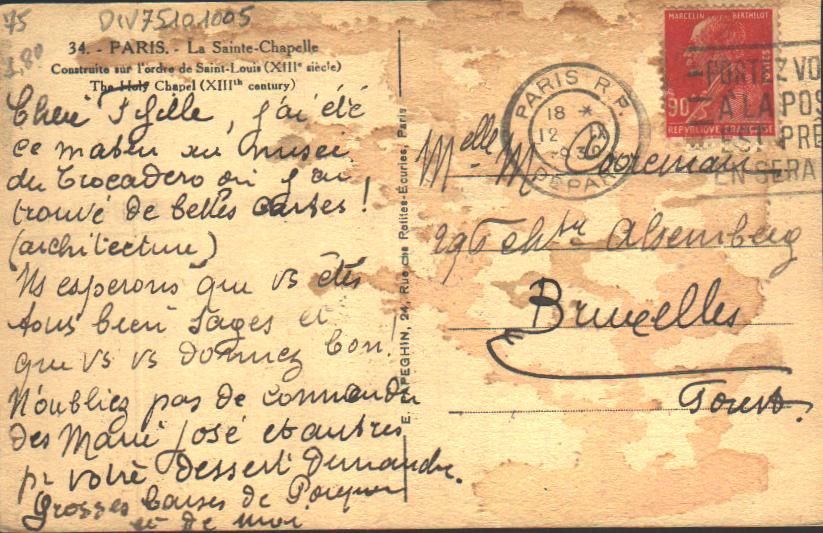 75 DIV7510.1005
1,80
34. - PARIS. - La Sainte-Chapelle
Construite sur l'ordre de Saint-Louis (XIIIe siècle)
The Holy Chapel (XIIIth century)
j'ai été
ce matin au musée
du Trocadero où j'ai
trouvé de belles cartes !
(architecture)
Ns esperons que vs êtes
tous bien sages et
que vs vs donnez bon !
N'oubliez pas de commander
des Marie José et autres
pr votre dessert Demander.
Grosses baises de
et de moi
E. PAPEGHIN, 24, Rue des Petites-Écuries, Paris
PARIS R.P.
18 *
12 IX
DEPART
MARCELIN BERTHELOT
90c
REPUBLIQUE FRANÇAISE
PORTEZ VO
A LA POS
EST PRÊ
EN SERA
Melle M. Cooremans
29 Alsemberg
Bruxelles
Forest.